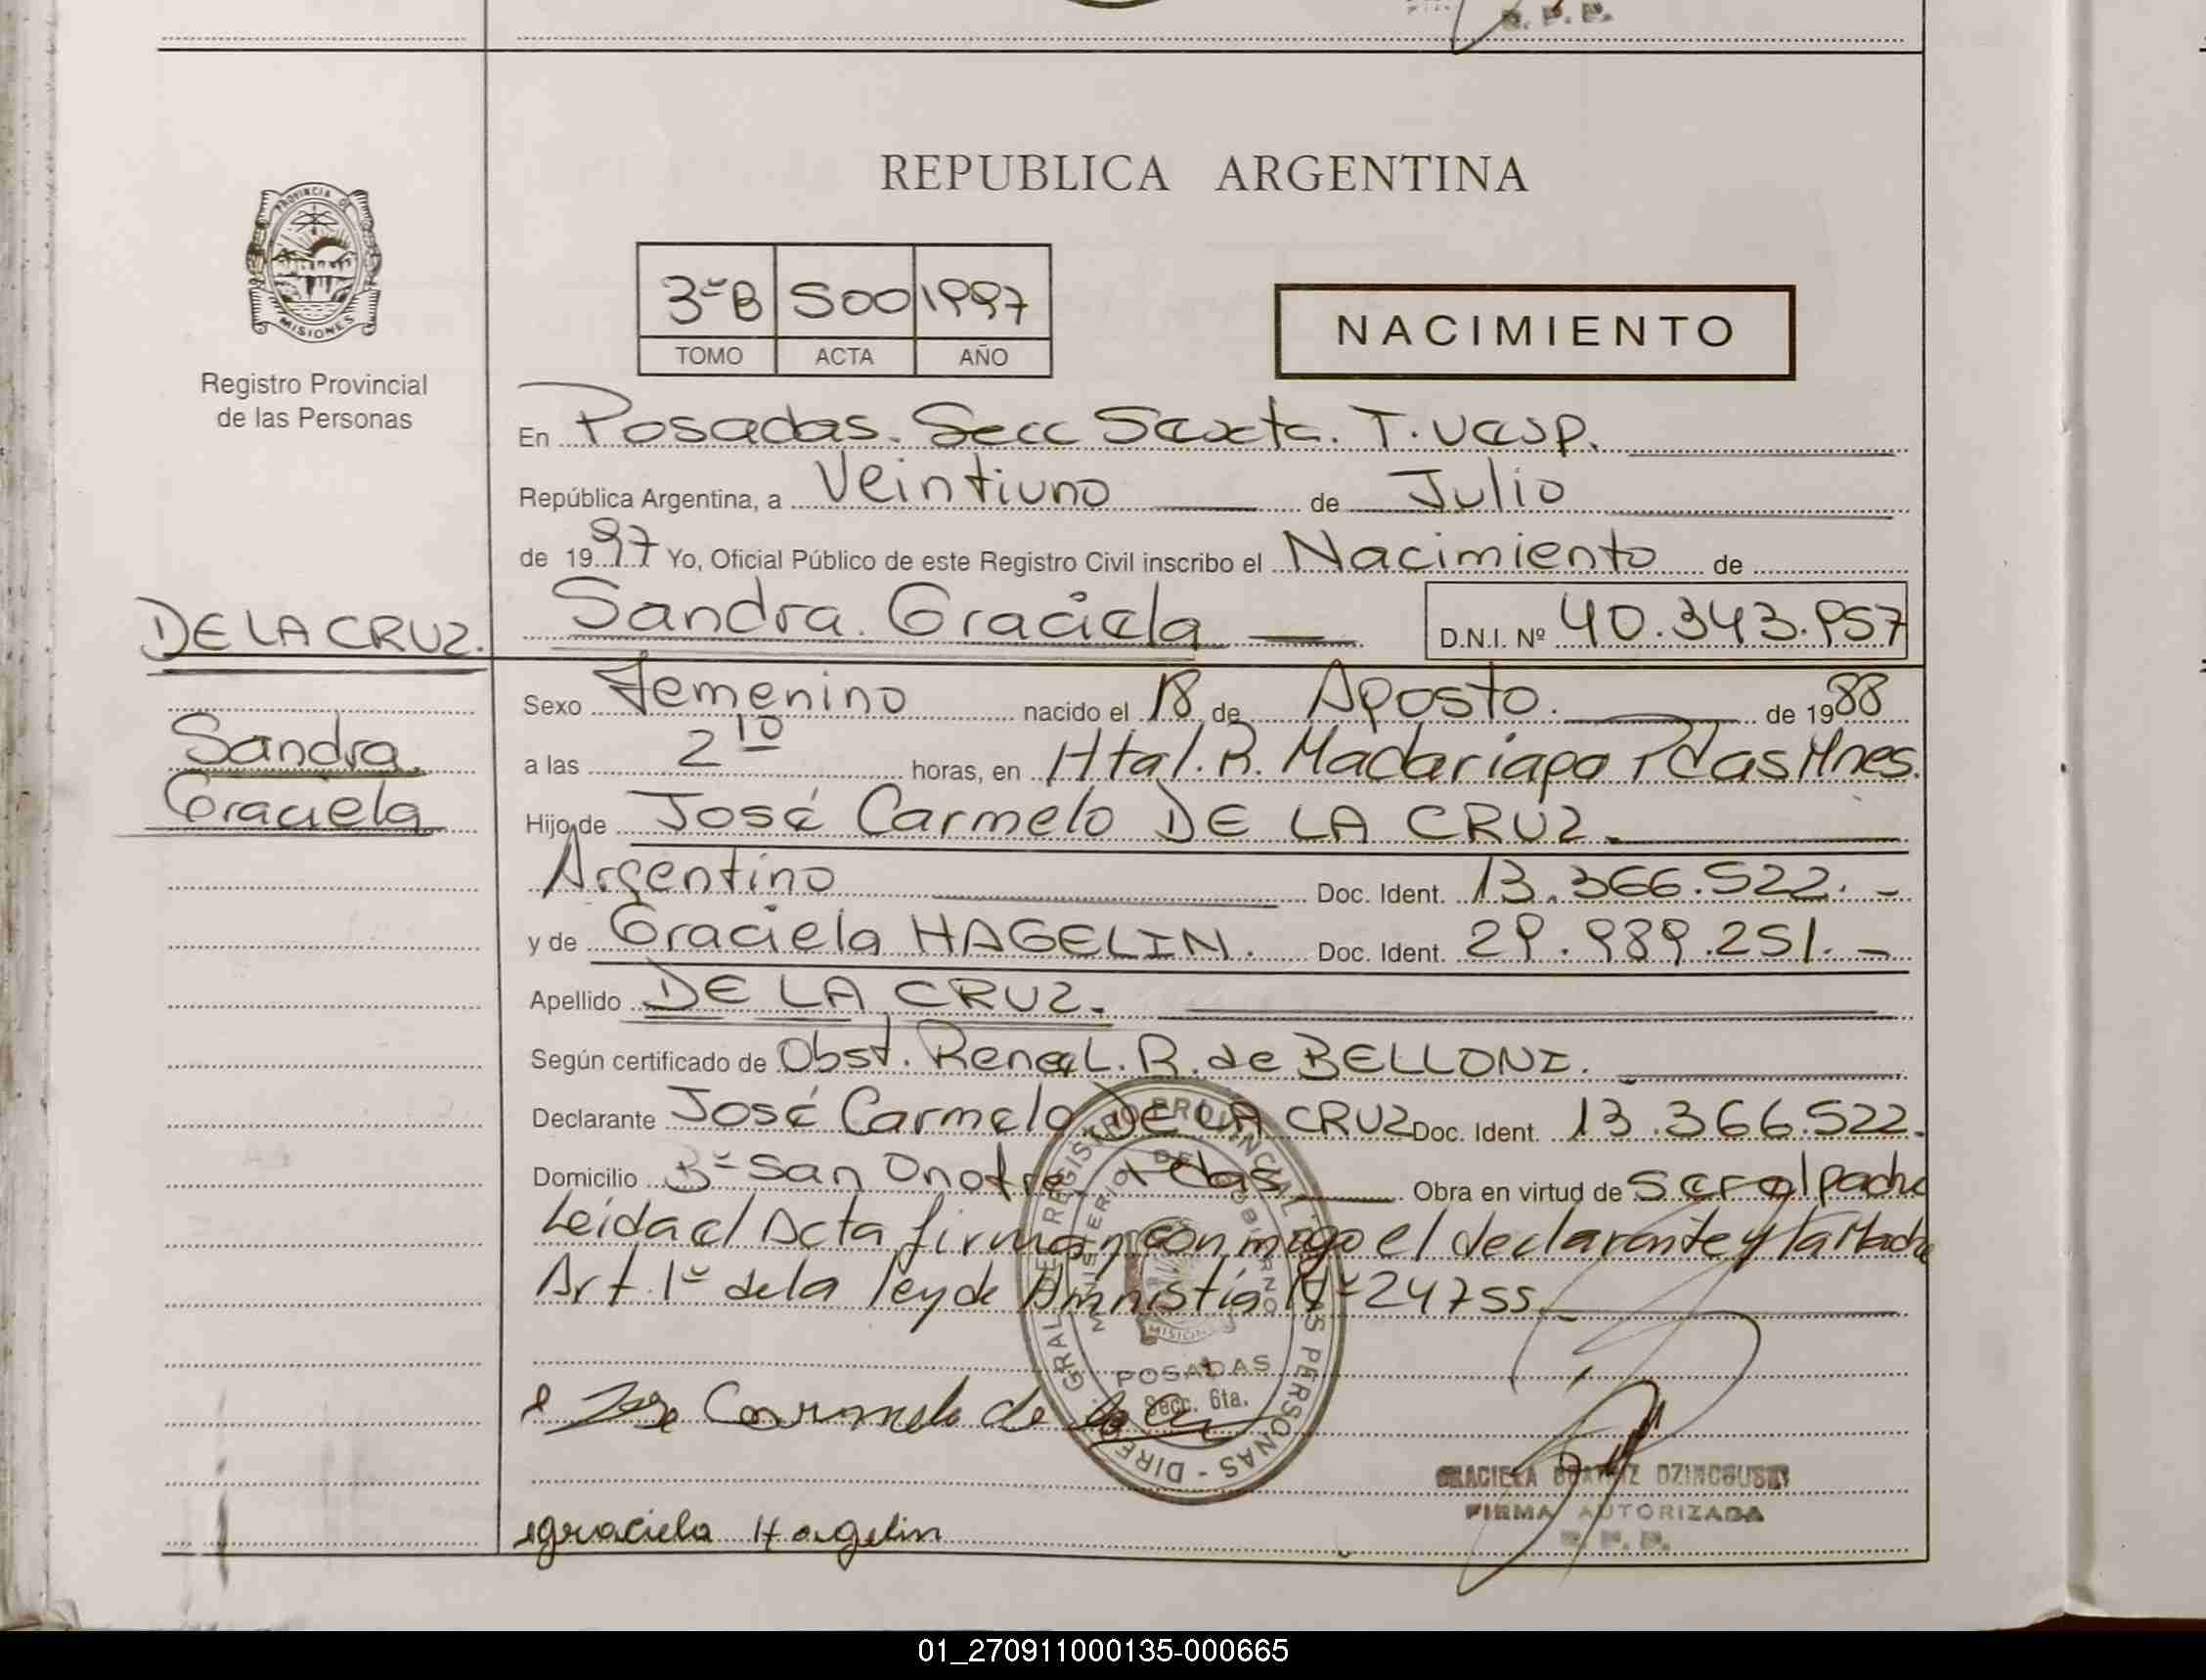 REPUBLICA ARGENTINA
PROVINCIA DE
MISIONES
Registro Provincial
de las Personas
3ºB 500 1997
TOMO ACTA AÑO
NACIMIENTO
En Posadas. Secc Sexta. T. Vesp.
República Argentina, a Veintiuno de Julio
de 1997 Yo, Oficial Público de este Registro Civil inscribo el Nacimiento de
DE LA CRUZ.
Sandra Graciela
Sandra Graciela D.N.I. Nº 40.343.957
Sexo Femenino nacido el 18 de Agosto. de 1988
a las 2 10 horas, en Htal. R. Madariaga Pdas Mnes.
Hijo de José Carmelo DE LA CRUZ.
Argentino Doc. Ident. 13.366.522.-
y de Graciela HAGELIN. Doc. Ident. 29.989.251.-
Apellido DE LA CRUZ.
Según certificado de Obst. Rene L. R. de BELLONI.
Declarante José Carmelo DE LA CRUZ Doc. Ident. 13.366.522.
Domicilio Bº San Onofre Pdas Obra en virtud de ser el padre
Leida el Acta firman conmigo el declarante y la Madre
Art. 1º de la ley de Amnistía Nº 24755.
DIRE. GRAL. DE REGISTRO PROVINCIAL DE LAS PERSONAS
MINISTERIO DE GOBIERNO
MISIONES
POSADAS
Secc. 6ta.
Jose Carmelo de la Cruz
GRACIELA BEATRIZ
FIRMA AUTORIZADA
R. P. P.
graciela Hagelin
01_270911000135-000665